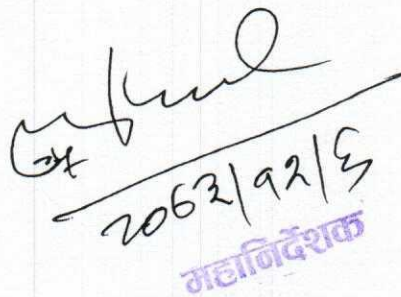 २०७३/१२/६
महानिर्देशक